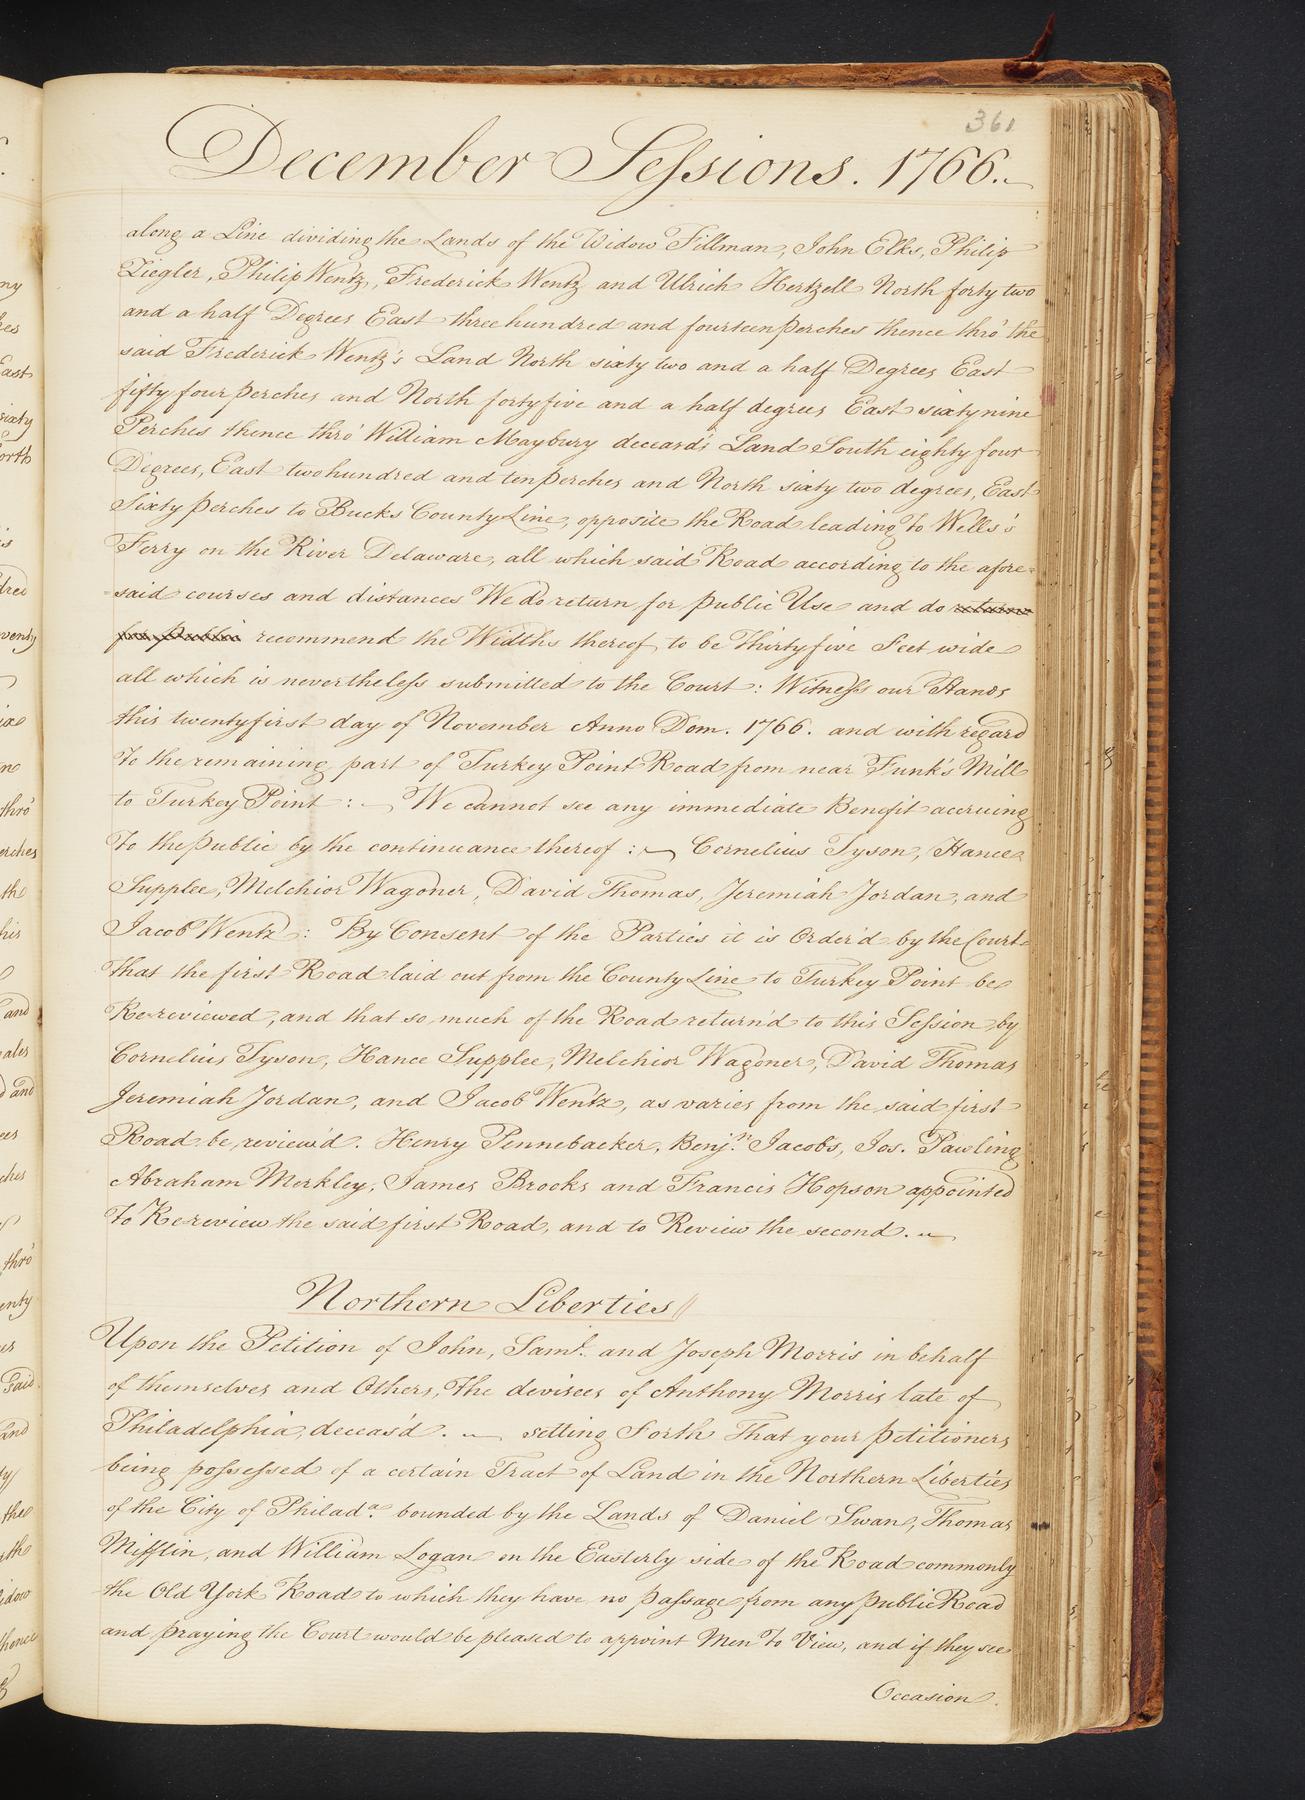 361
December Sessions. 1766.
along a Line dividing the Lands of the Widow Tillman, John Elks, Philip
Ziegler, Philip Wentz, Frederick Wentz and Ulrich Hertzell North forty two
and a half Degrees East three hundred and fourteen perches thence thro' the
said Frederick Wentz's Land North sixty two and a half Degrees East
fifty four perches and North forty five and a half degrees East sixty nine
Perches thence thro' William Maybury deceas'd's Land South eighty four
Degrees, East two hundred and ten perches and North sixty two degrees, East
Sixty perches to Bucks County Line, opposite the Road leading To Wells's
Ferry on the River Delaware, all which said Road according to the afore=
=said courses and distances We do return for public Use and do return
for Public recommend the Widths thereof to be Thirty five Feet wide
all which is nevertheless submitted to the Court: Witness our Hands
this twenty first day of November Anno Dom. 1766. and with regard
To the remaining part of Turkey Point Road from near Funk's Mill
to Turkey Point :~ We cannot see any immediate Benefit accruing
To the public by the continuance thereof :~ Cornelius Tyson, Hance
Supplee, Melchior Wagoner, David Thomas, Jeremiah Jordan, and
Jacob Wentz: By Consent of the Parties it is Order'd by the Court
That the first Road laid out from the County Line to Turkey Point be
Re-reviewed, and that so much of the Road return'd to this Session by
Cornelius Tyson, Hance Supplee, Melchior Wagoner, David Thomas
Jeremiah Jordan, and Jacob Wentz, as varies from the said first
Road be review'd. Henry Pennebacker, Benj.n Jacobs, Jos. Pawling
Abraham Merkley, James Brooks and Francis Hopson appointed
To Re-review the said first Road, and to Review the second.
Northern Liberties
Upon the Petition of John, Saml. and Joseph Morris in behalf
of themselves and Others, The devisees of Anthony Morris late of
Philadelphia, deceas'd. ~ setting Forth That your petitioners
being possessed of a certain Tract of Land in the Northern Liberties
of the City of Philad.a bounded by the Lands of Daniel Swan, Thomas
Mifflin, and William Logan on the Easterly side of the Road commonly
the Old York Road to which they have no passage from any public Road
and praying the Court would be pleased to appoint Men To View, and if they see
Occasion.